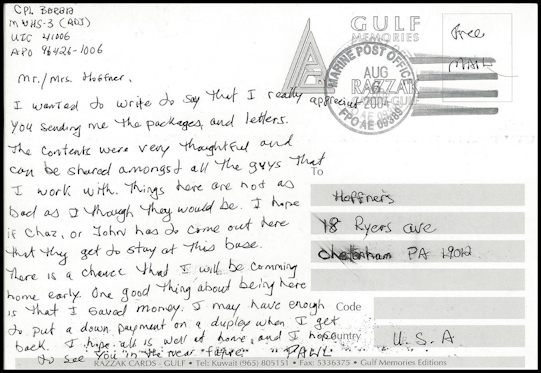 CPL Barba
MWHS-3 (ADJ)
UIC 41006
APO 96426-1006
Mr./Mrs. Hoffner.
I wanted to write to say that I really appreciat
You sending me the packages, and letters.
The contents were very thoughtful and
can be shared amongst all the guys that
I work with. Things here are not as
bad as I though they would be. I hope
if Chaz, or John has to come out here
that they get to stay at this base.
There is a chance that I will be comming
home early. One good thing about being here
is that I saved money. I may have enough
to put a down payment on a duplex when I get
back. I hope all is well at home, and I hope
to see you in the near future. PAUL
GULF
MEMORIES
MARINE POST OFFICE
AUG
6
2004
FPO AE
RAZZAK
Free
MAIL
To
Hoffner's
18 Ryers ave
Cheltenham PA 19012
Code
Country
U.S.A
RAZZAK CARDS - GULF • Tel: Kuwait (965) 805151 • Fax: 5336375 • Gulf Memories Editions